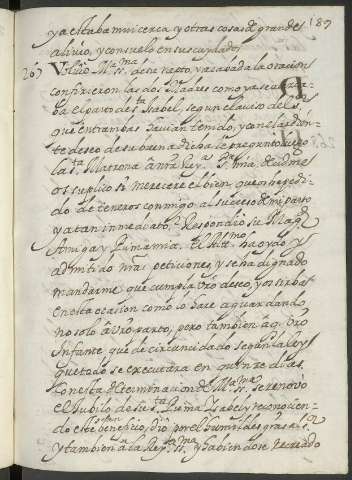 187
ya estaba mui cerca y otras cosas de grande
alivio, y consuelo en sus cuydados
267 Volvio M.ª SS.ma de este rapto, y acabada la oracion
confirieron las dos Madres como ya se acerca-
ba el parto de S.ta Isabel, segun el aviso del S.r
que entrambas havian tenido, y con el ardien-
te deseo de su buena dicha le pregunto luego
la S.ta Matrona à nr̃a Reyna S.ra mia, decidme
os suplico si merecere el bien, que os he pedi-
do de teneros conmigo al suceso de mi parto
ya tan inmediato? Respondio su Mag.d
Amiga y Prima mia, el Altissimo ha oydo, y
admitido nr̃as peticiones y se ha dignado
mandarme que cumpla vr̃o deseo, y os sirba
en esta ocasion como lo haré aguardando
no solo à vr̃o parto, pero tambien à q vr̃o
Infante quede circuncidado segun la Ley
que todo se executará en quinze dias.
Con esta determinacion de Maria SS.ma se renovo
el Jubilo de su S.ta Prima Isabel y reconocien-
do este beneficio, dio por el humildes gracias
y tambien à la Reyna SS.ma y habiendose recreado